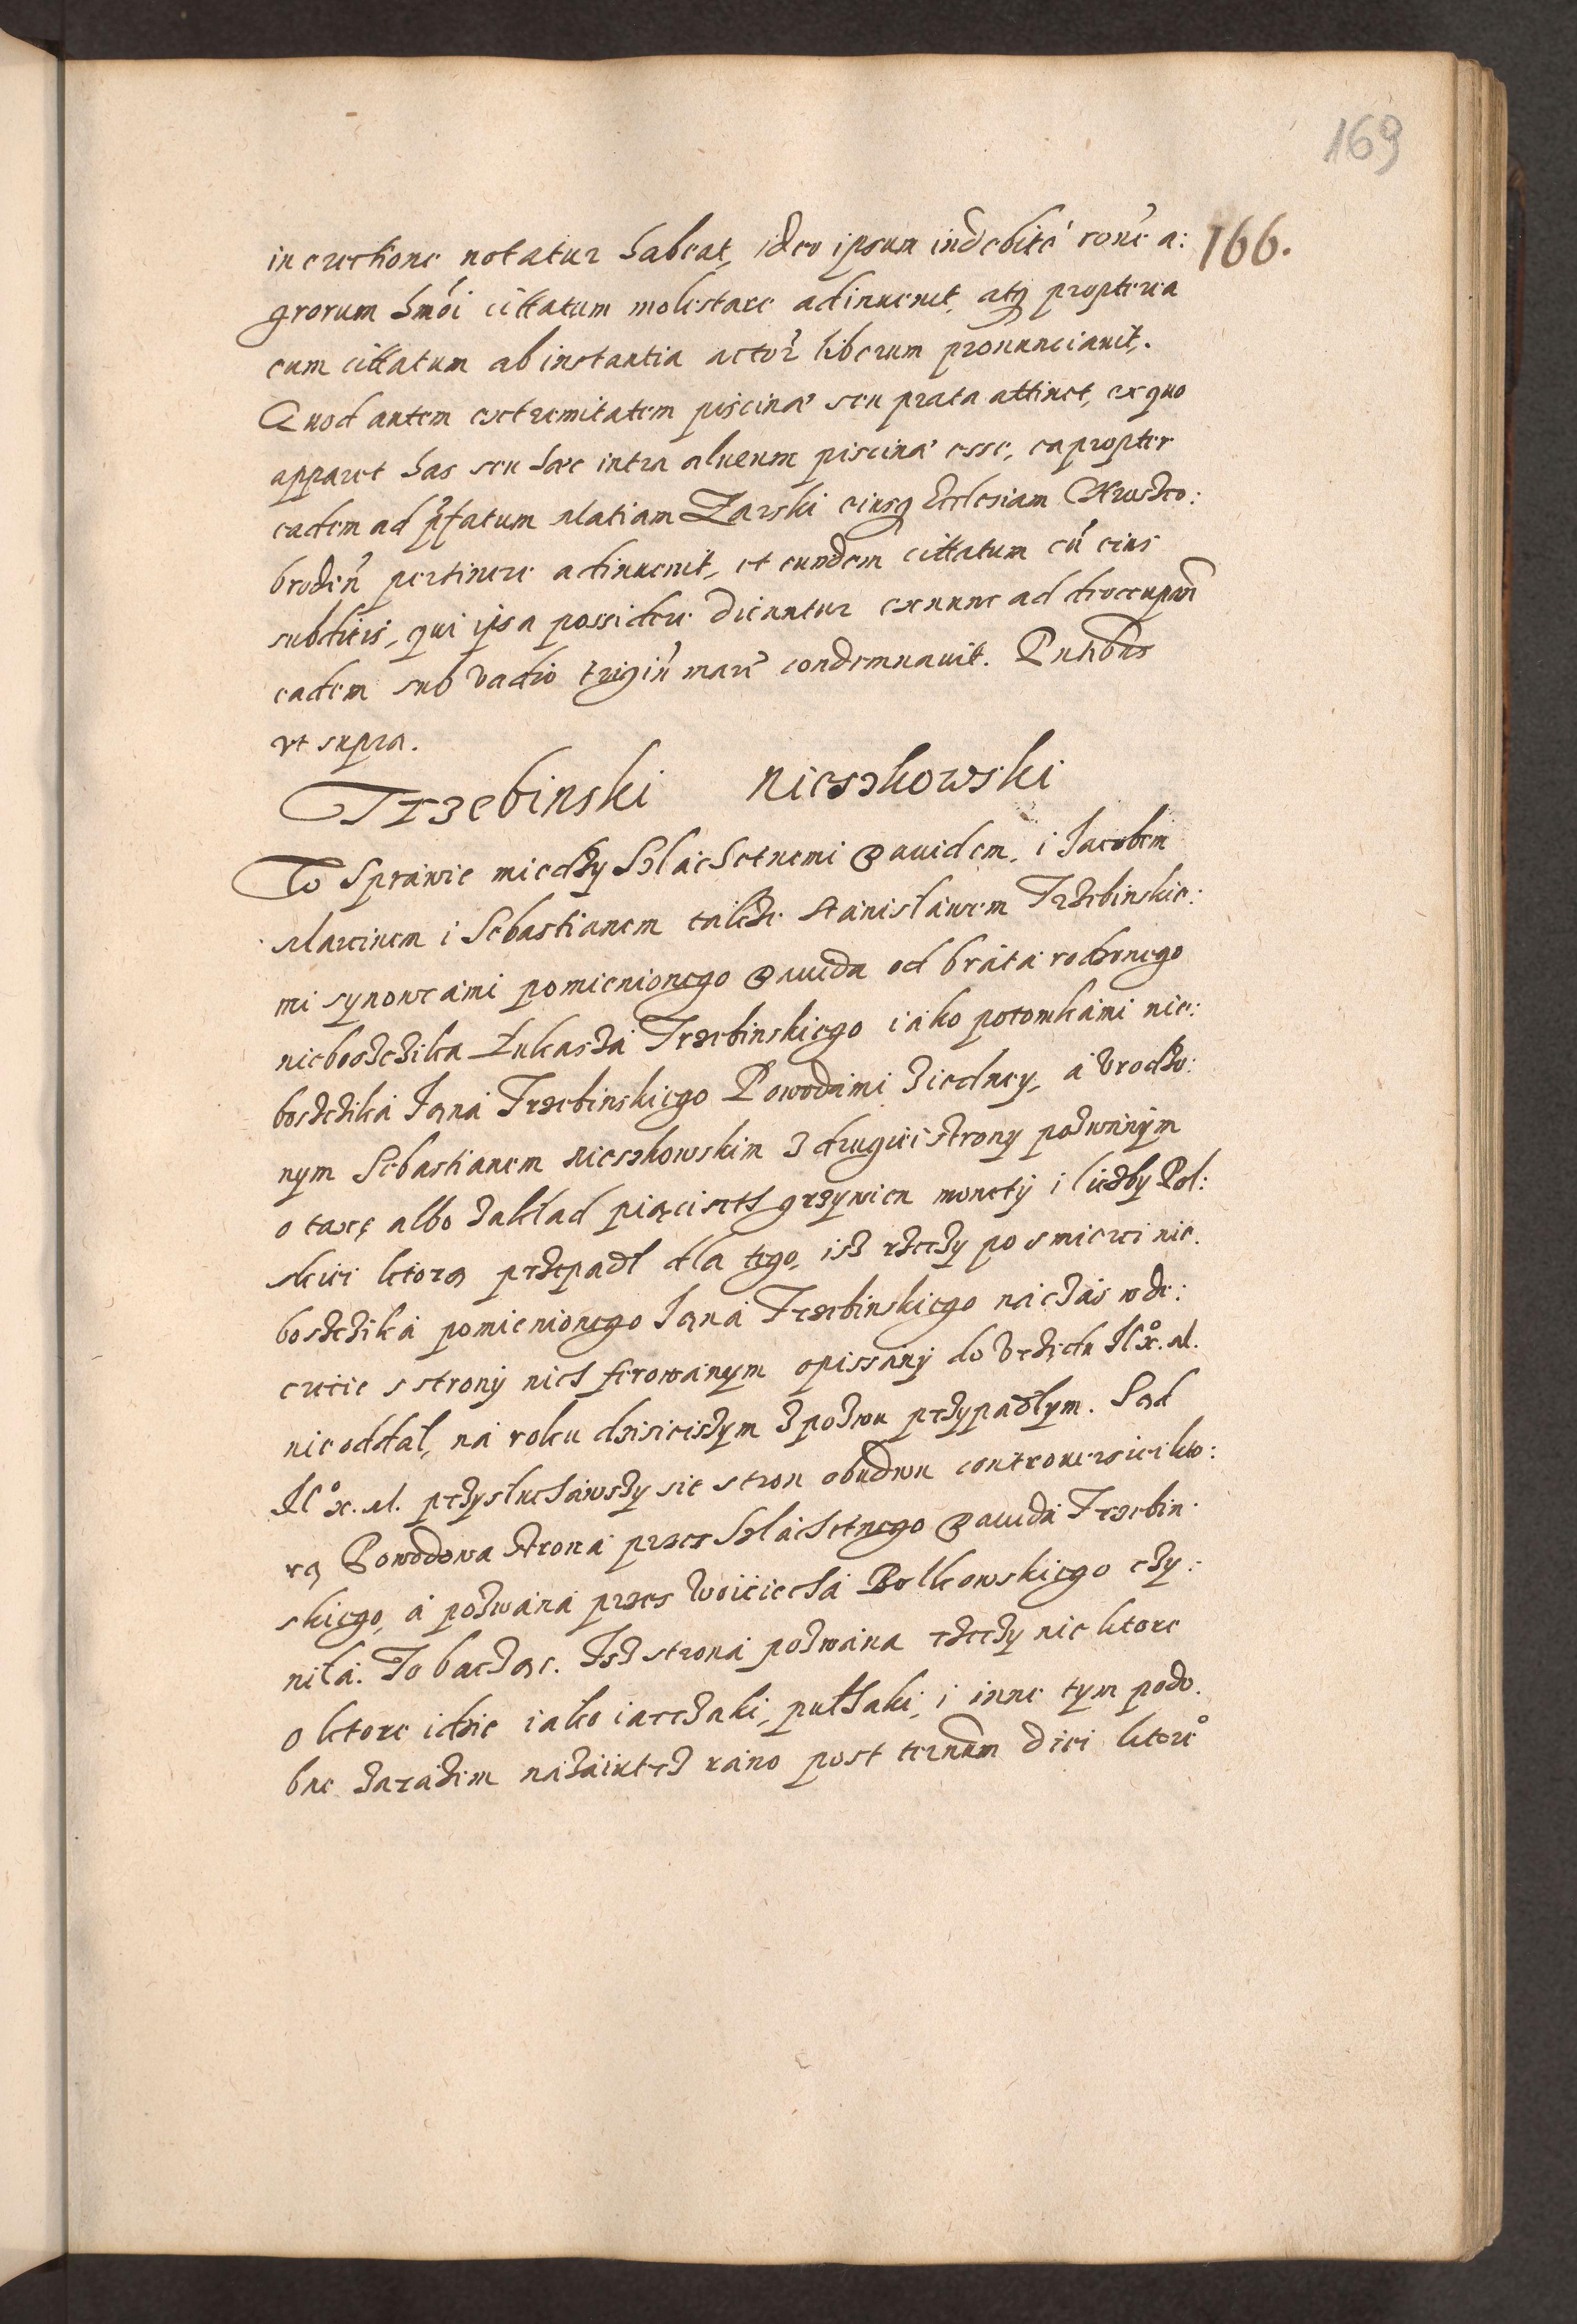 169
166.
in erectione notatur habeat, ideo ipsum indebitè rone a:
grorum hmoi cittatum molestare adinuenit, atq propterea
eum cittatum ab instantia actor liberum pronunciauit.
Quod autem extremitatem piscinae seu prata attinet, ex quo
apparet has seu haec intra alueum piscinae esse, eapropter
eadem ad pfatum Matiam Zarski eiusq Ecclesiam Chruszczo:
brodzen pertinere adinuenit, et eundem cittatum cu eius
subditis, qui ipsa possidere dicuntur ex nunc ad deoccupan
eadem sub vadio trigin marc condemnauit. Pntibus
vt supra.
Trzebinski nieszkowski
W Sprawie miedzy Szlachetnemi Dauidem, i Jacobem
Marcinem i Sebastianem takze Stanisławem Trzebinskie:
mi synowcami pomienionego Dauida od bráta rodzonego
nieboszczika Łukaszá Trzebinskiego iáko potomkámi nie:
boszczika Janá Trzebinskiego Powodámi z iedney, á Vrodzo:
nym Sebastianem nieszkowskim z drugiei strony pozwánym
o taxę albo zakład pięciseth grzywien monety i liczby Pol:
skiei ktorą przepadł dla tego, isz rzeczy po smierci nie.
boszcziká pomienionego Janá Trzebinskiego ná czás w de:
crecie s strony nich ferowánym opissány do Vrzędu Jk° x. M.
nie oddał, ná roku dzisieiszym z pozwu przypadłym. Sąd
Jk° x. M. przysłuchawszy sie stron obudwu controuersiei kto:
rą Powodowa strona przes Szláchetnego Dauidá Trzebin:
skiego, á pozwána przes Woiciechá Bolkowskiego czy:
niłá. To bacząc. Isz stroná pozwána rzeczy nie ktore
o ktore idzie iáko iarczaki, pułhaki, i inne tym podo.
bne zarázem názaiutrz ráno post ternum diei ktore°